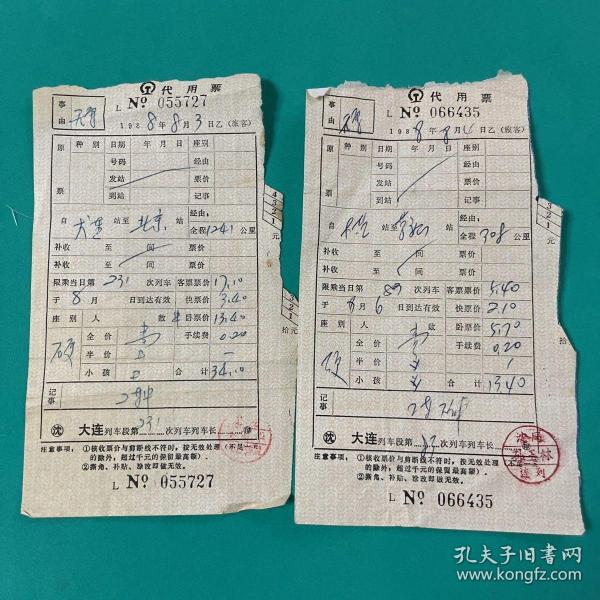 代用票
事由 无票
L No 055727
1988年8月3日乙(旅客)
原票 种别 日期 年月日 座别
号码 经由
发站 票价
到站 记事
自 大连 站至 北京 站 经由:
全程1241公里
补收 至 间 票价
补收 至 间 票价
限乘当日第231次列车 客票票价 17.10
于8月 日到达有效 快票价 3.40
座别 人数 卧票价 13.40
硬 全价 手续费 0.20
半价 一
小孩 合计 34.10
记事
沈 大连列车段第231次列车列车长 印
注意事项: ①核收票价与剪断线不符时,按无效处理(不足一元
的除外,超过千元的保留最高额)。
②撕角、补贴、涂改即做无效。
L No 055727
代用票
事由
L No 066435
1988年8月 日乙(旅客)
原票 种别 日期 年月日 座别
号码 经由
发站 票价
到站 记事
自 站至 站 经由:
全程308公里
补收 至 间 票价
补收 至 间 票价
限乘当日第89次列车 客票票价 5.40
于8月6日到达有效 快票价 2.10
座别 人数 卧票价 5.70
硬 全价 手续费 0.20
半价
小孩 合计 13.40
记事
沈 大连列车段第 次列车列车长
注意事项: ①核收票价与剪断线不符时,按无效处理(不足
的除外,超过千元的保留最高额)。
②撕角、补贴、涂改即做无效。
L No 066435
孔夫子旧书网
www.kongfz.com